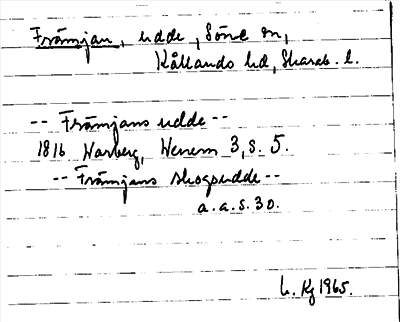 Främjan, udde, Söne sn,
Kållands hd, Skarab. l.
-- Främjans udde --
1816 Warberg, Wenern 3, s. 5.
-- Främjans skogsudde --
a.a.s. 30.
L. Kg 1965.